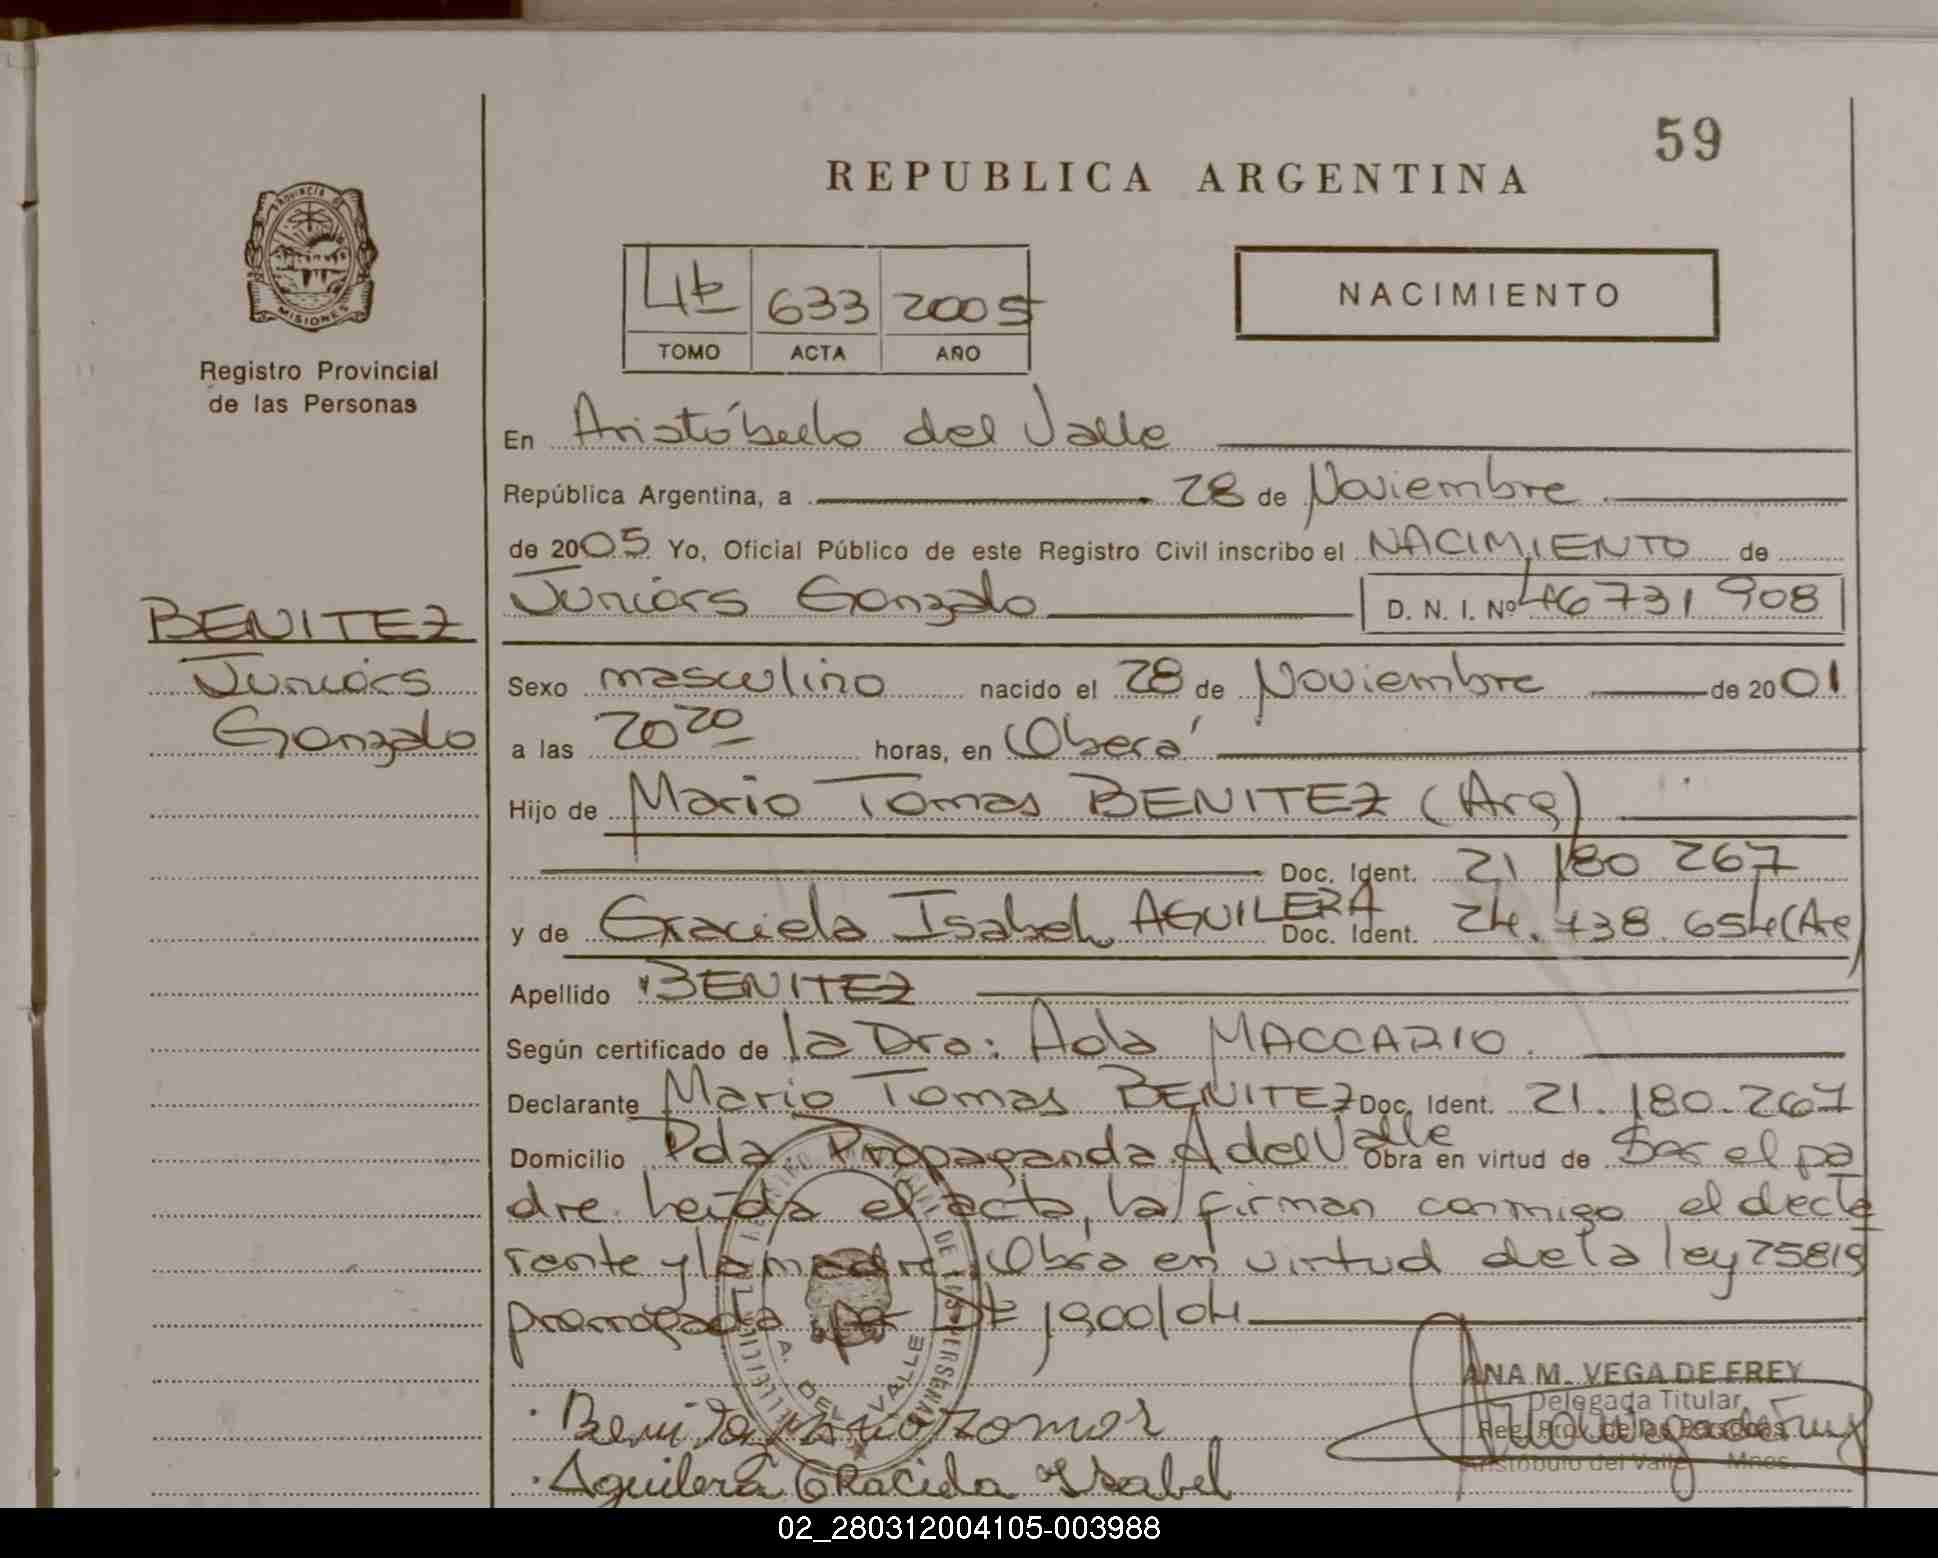 59
REPUBLICA ARGENTINA
PROVINCIA DE
MISIONES
Registro Provincial
de las Personas
4to 633 2005
TOMO ACTA AÑO
NACIMIENTO
En Aristóbulo del Valle
República Argentina, a 28 de Noviembre
de 2005 Yo, Oficial Público de este Registro Civil inscribo el NACIMIENTO de
Juniors Gonzalo D. N. I. Nº 46731908
BENITEZ
Juniors
Gonzalo
Sexo masculino nacido el 28 de Noviembre de 2001
a las 20 20 horas, en Oberá
Hijo de Mario Tomas BENITEZ (Arg)
Doc. Ident. 21 180 267
y de Graciela Isabel AGUILERA Doc. Ident. 24.738.654 (Ar
Apellido BENITEZ
Según certificado de la Dra: Ada MACCARIO.
Declarante Mario Tomas BENITEZ Doc. Ident. 21.180.267
Domicilio Pda Propaganda A del Valle Obra en virtud de Ser el pa
dre. Leída el acta, la firman conmigo el decla
rante y la madre. Obra en virtud de la ley 25819
prorrogada Dt 1900/04
A. DEL VALLE
ANA M. VEGA DE FREY
Delegada Titular
Reg. Prov. de las Personas
Aristóbulo del Valle Mnes.
Benitez Mario Tomas
Aguilera Gracida Isabel
02_280312004105-003988